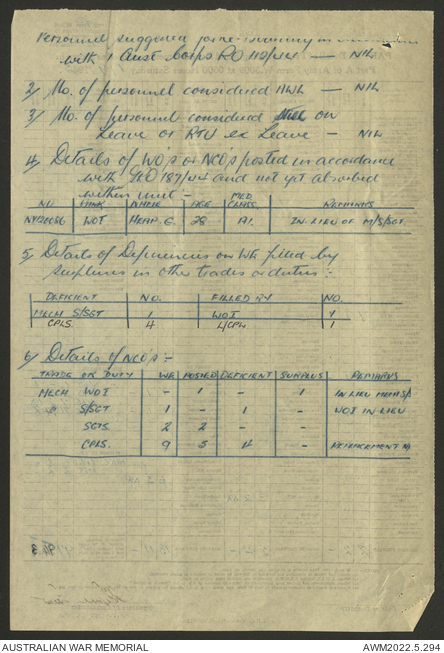 Personnel suggested
with 1 Aust Corps RO 112/44 — NIL
2/ No. of personnel considered AWL — NIL
3/ No. of personnel considered on
Leave or RTU ex Leave — NIL
4/ Details of WO's or NCO's posted in accordance
with GRO 187/44 and not yet absorbed
within unit -
NO RANK NAME AGE MED CLASS. REMARKS
WO1 HEAP. G. 28 A1. IN LIEU OF M/S/SGT.
5/ Details of Deficiencies on WE filled by
surpluses in other trades or duties :-
DEFICIENT NO. FILLED BY NO.
MECH S/SGT 1 WO1 1
CPLS. 4 L/CPL 1
6/ Details of NCO's :-
TRADE OR DUTY WE POSTED DEFICIENT SURPLUS REMARKS
MECH WO1 - 1 - 1 IN LIEU MECH S/
" S/SGT 1 - 1 - WO1 IN LIEU
SGTS 2 2 -
CPLS. 9 5 4 REINFORCEMENT
AUSTRALIAN WAR MEMORIAL
AWM2022.5.294